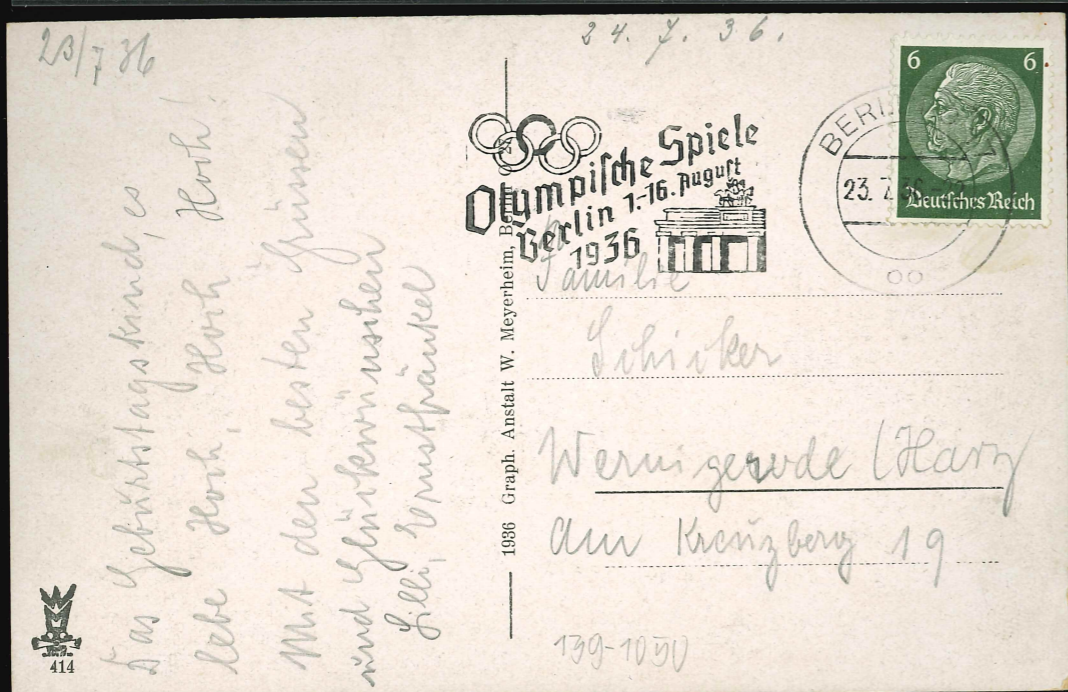 23/7 36
24. 7. 36.
Das Geburtstagskind, es
lebe Hoch, Hoch, Hoch!
Mit den besten Grüssen
und Glückwünschen
Lilli, Ernst Fränkel
414
1936 Graph. Anstalt W. Meyerheim, Berlin
Olympische Spiele
Berlin 1.-16. August
1936
BERLIN
23. 7. 36
6 6
Deutsches Reich
Familie
Schicker
Wernigerode (Harz
Am Kreuzberg 19
139-1050